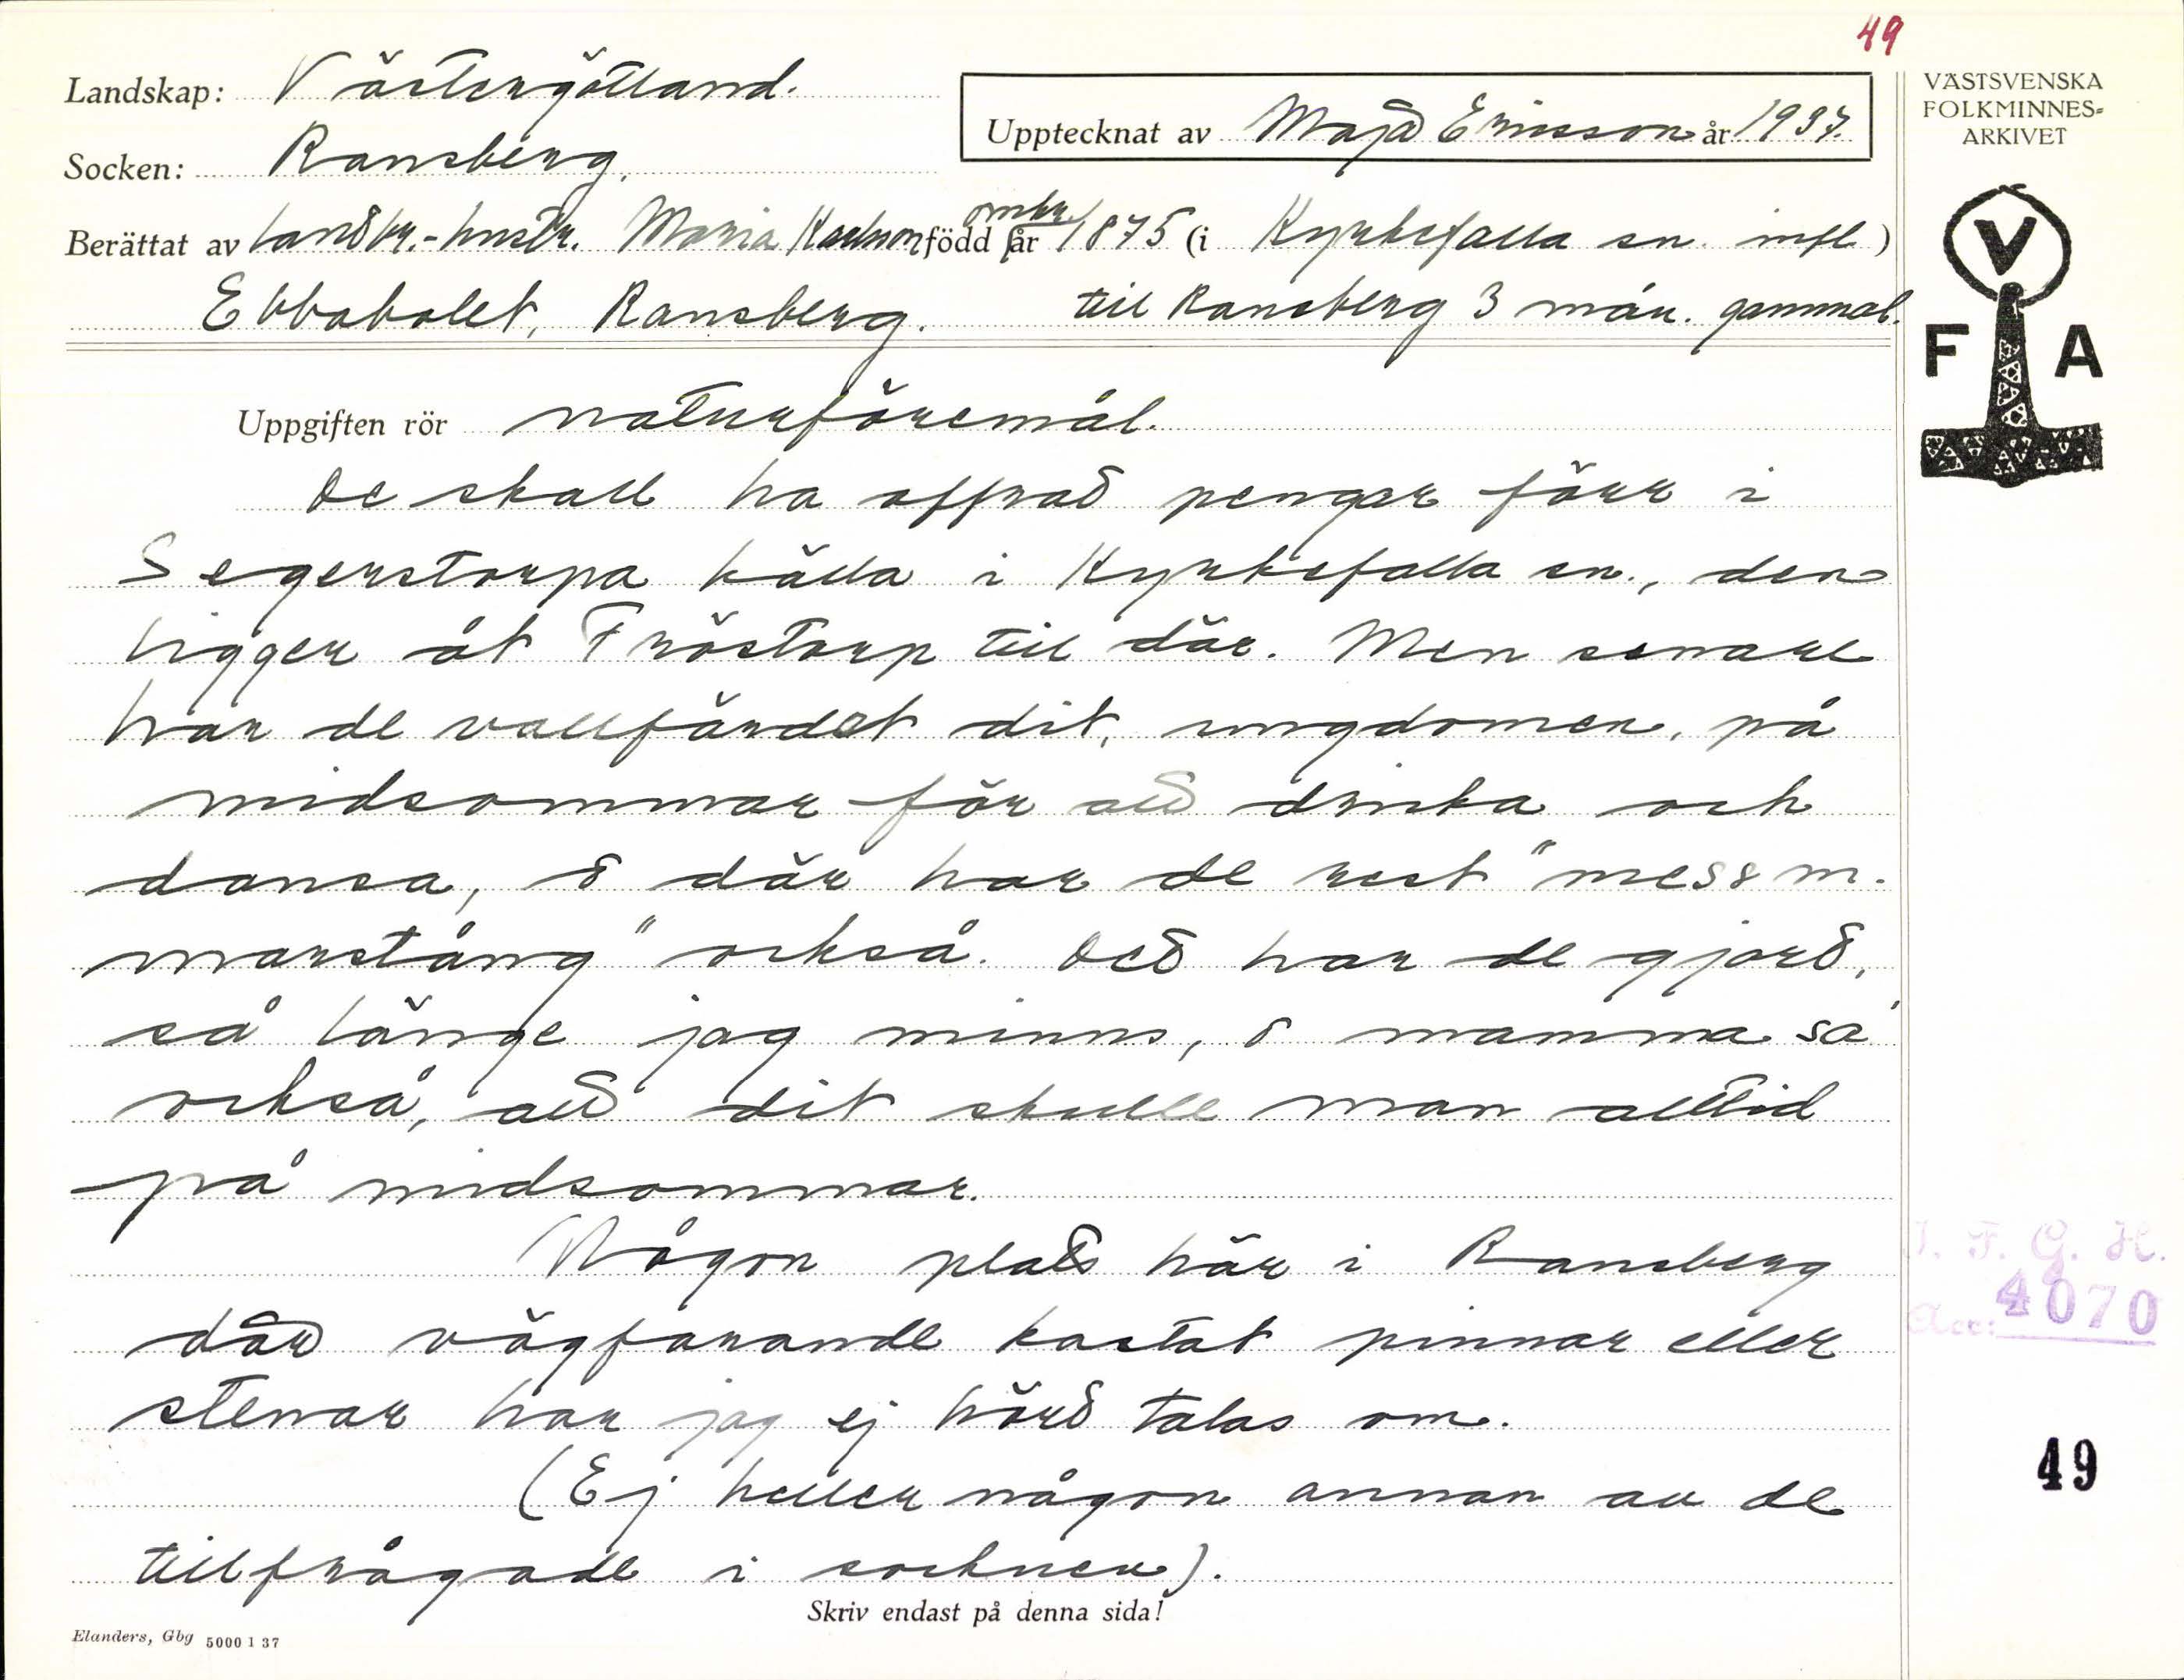 49
Landskap: Västergötland.
Upptecknat av Maja Ericsson år 1937.
VÄSTSVENSKA
FOLKMINNES=
ARKIVET
Socken: Ransberg.
Berättat av landbr.-hustr. Maria Karlson född omkr. år 1875 (i Kyrkefalla sn. infl.)
Ebbabolet, Ransberg. till Ransberg 3 mån. gammal.
V
F A
Uppgiften rör naturföremål.
De skall ha offrat pengar förr i
Segerstorpa källa i Kyrkefalla sn., den
ligger åt Fröstorp till där. Men senare
har de vallfärdat dit, ungdomen, på
midsommar för att dricka och
dansa, o där har de rest "messm-
marstång" också. Det har de gjort,
så länge jag minns, o mamma sa'
också, att dit skulle man alltid
på midsommar.
Någon plats här i Ransberg
där vägfarande kastat pinnar eller
stenar har jag ej hört talas om.
(Ej heller någon annan av de
tillfrågade i socknen).
I. F. G. H.
Acc: 4070
49
Skriv endast på denna sida!
Elanders, Gbg 5000 1 37